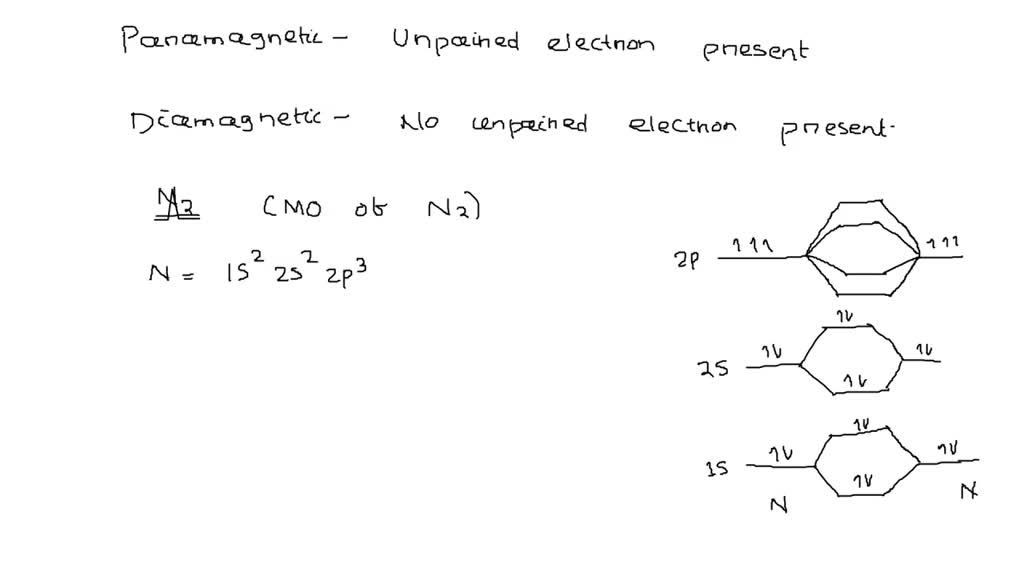 Paramagnetic - Unpaired electron present
Diamagnetic - No unpaired electron present.
N2 (MO of N2)
N = 1s² 2s² 2p³
2p 1 1 1 1 1 1
1L
2s 1L 1L
1L
1L
1s 1L 1L
1L
N N